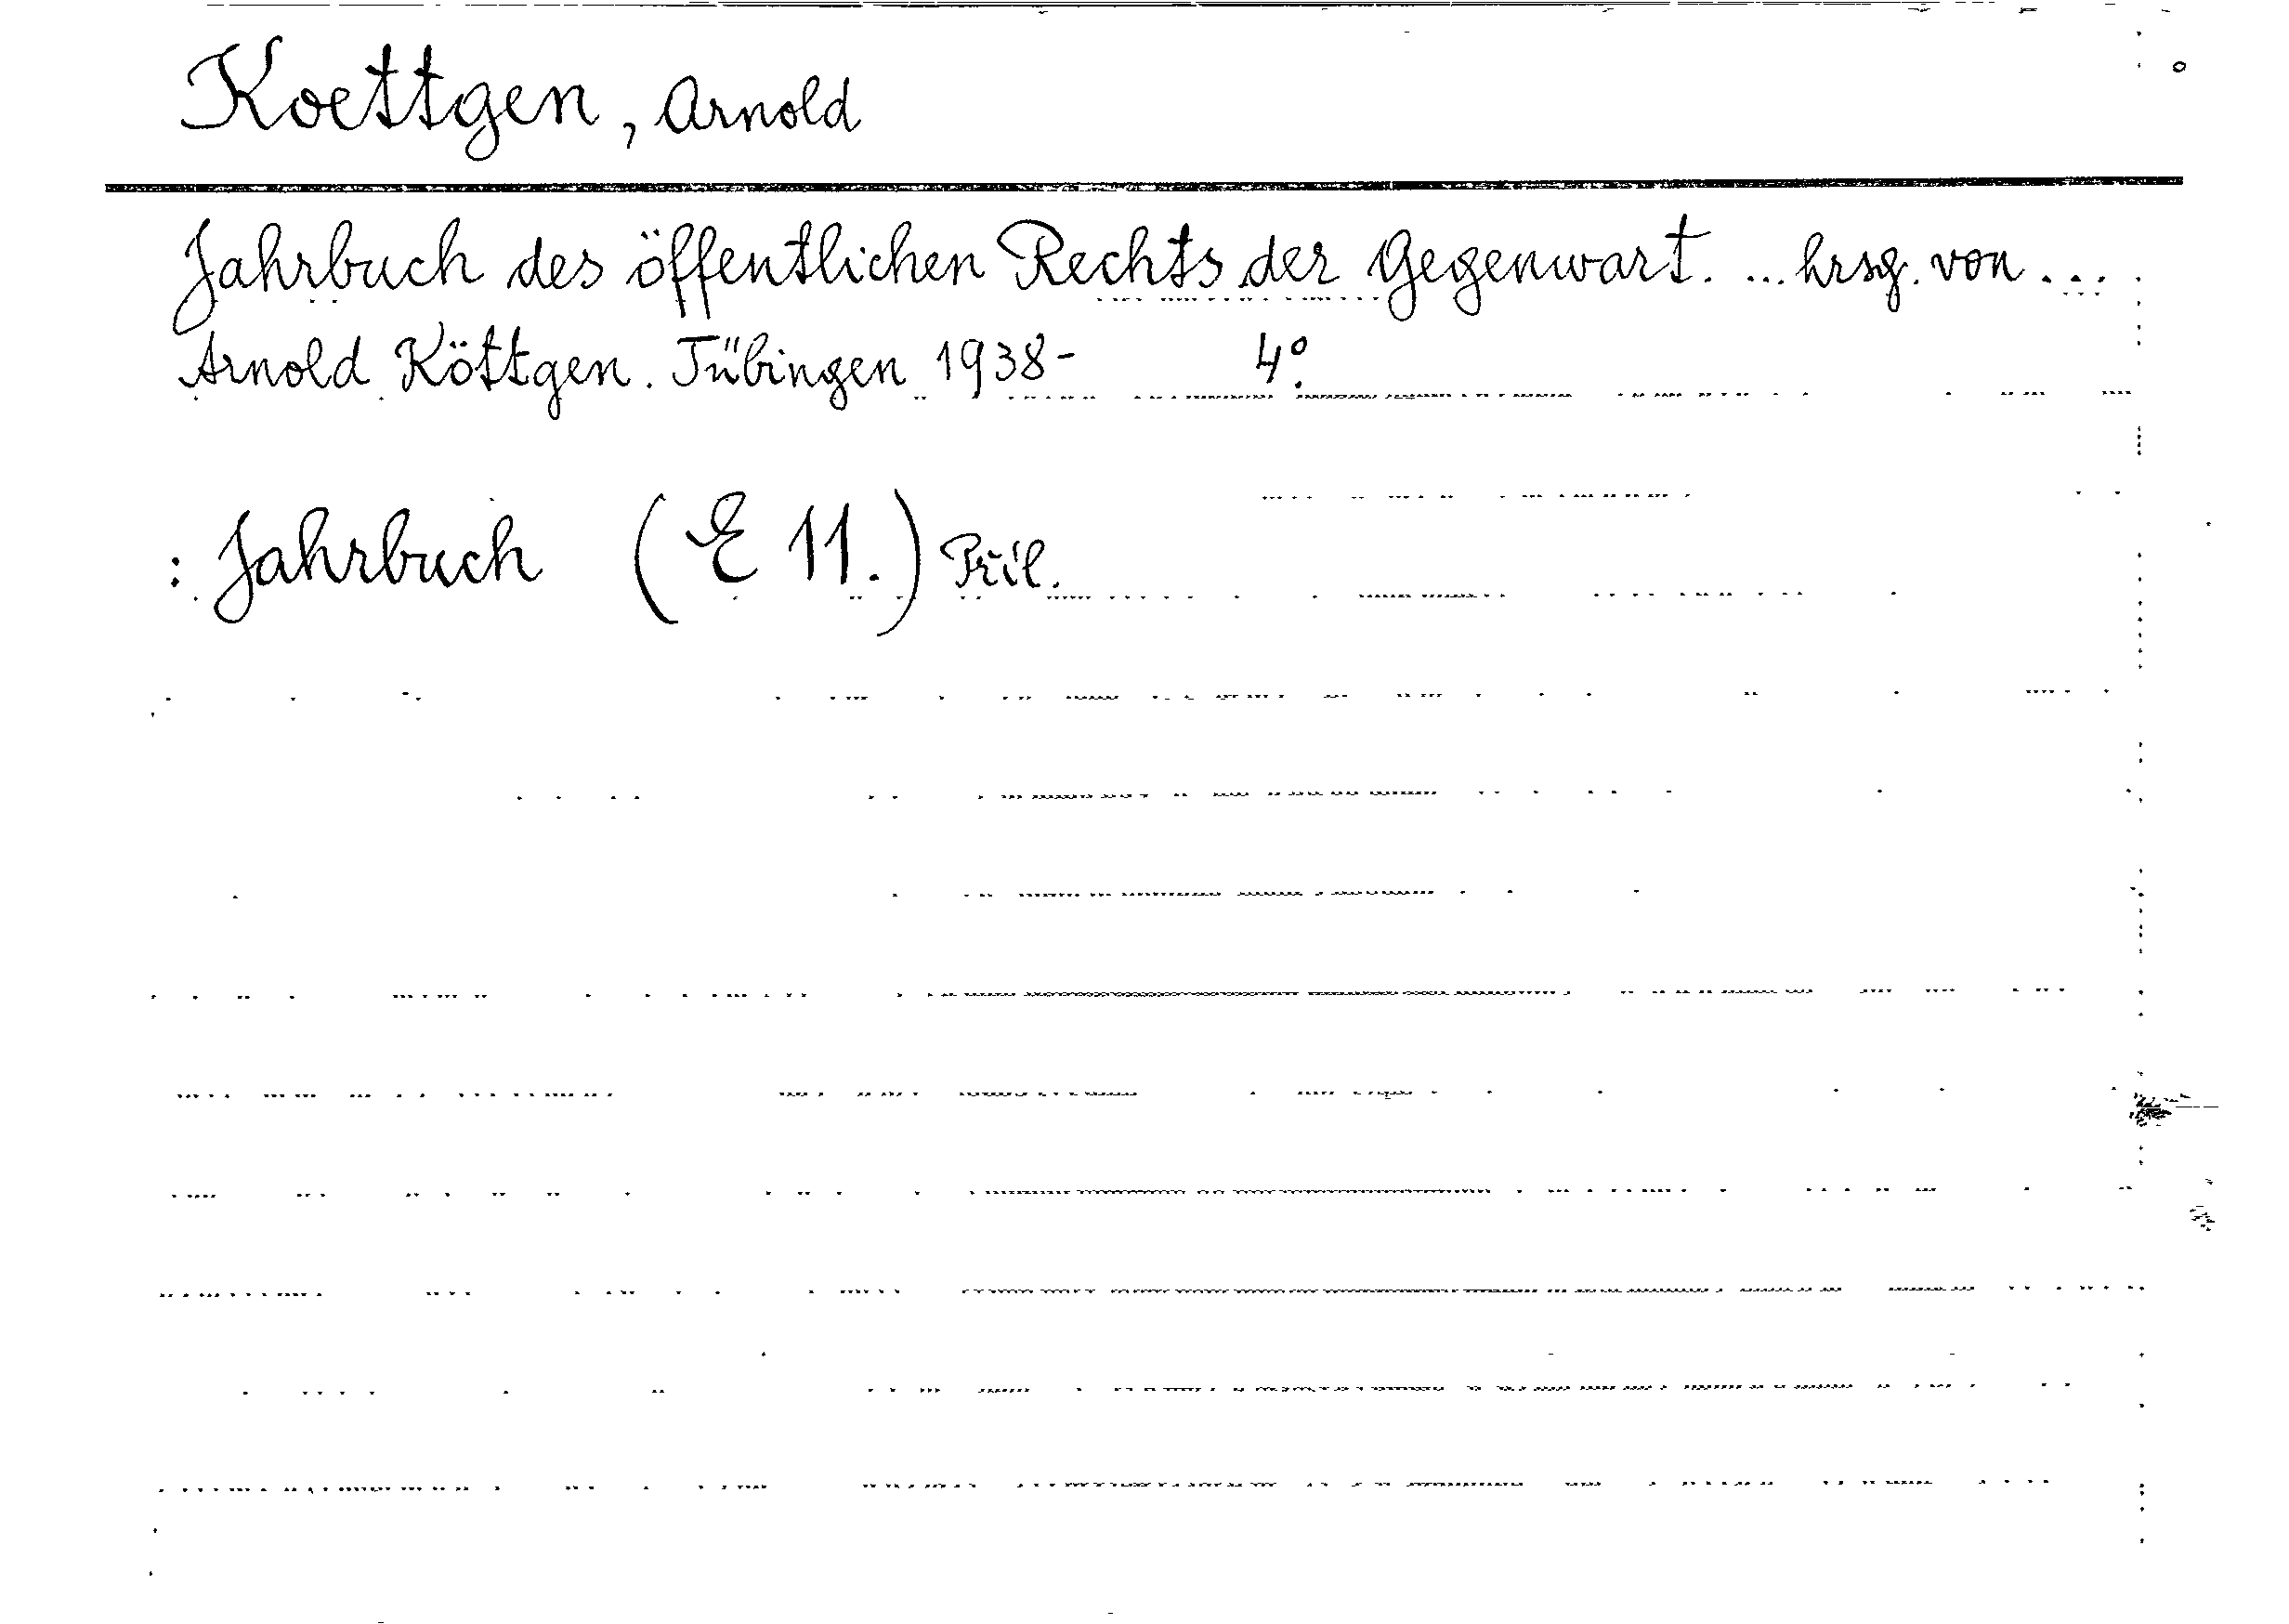 Koettgen, Arnold
Jahrbuch des öffentlichen Rechts der Gegenwart. ... hrsg. von ...
Arnold Köttgen. Tübingen 1938- 4°.
: Jahrbuch (E 11.)